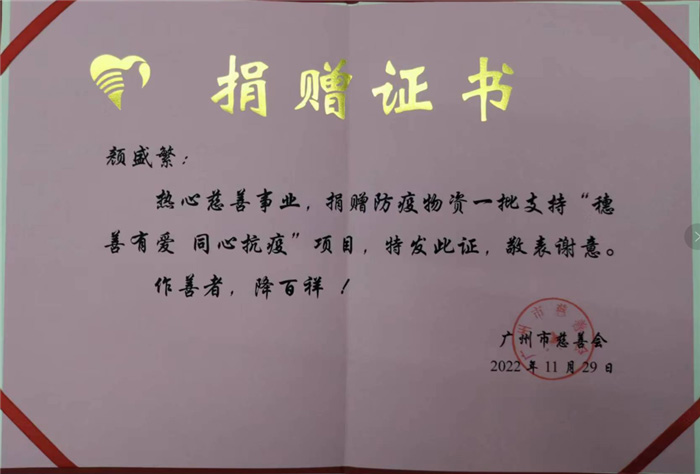 捐赠证书
颜盛繁：
热心慈善事业，捐赠防疫物资一批支持“穗
善有爱 同心抗疫”项目，特发此证，敬表谢意。
作善者，降百祥！
广州市慈善会
2022 年 11 月 29 日